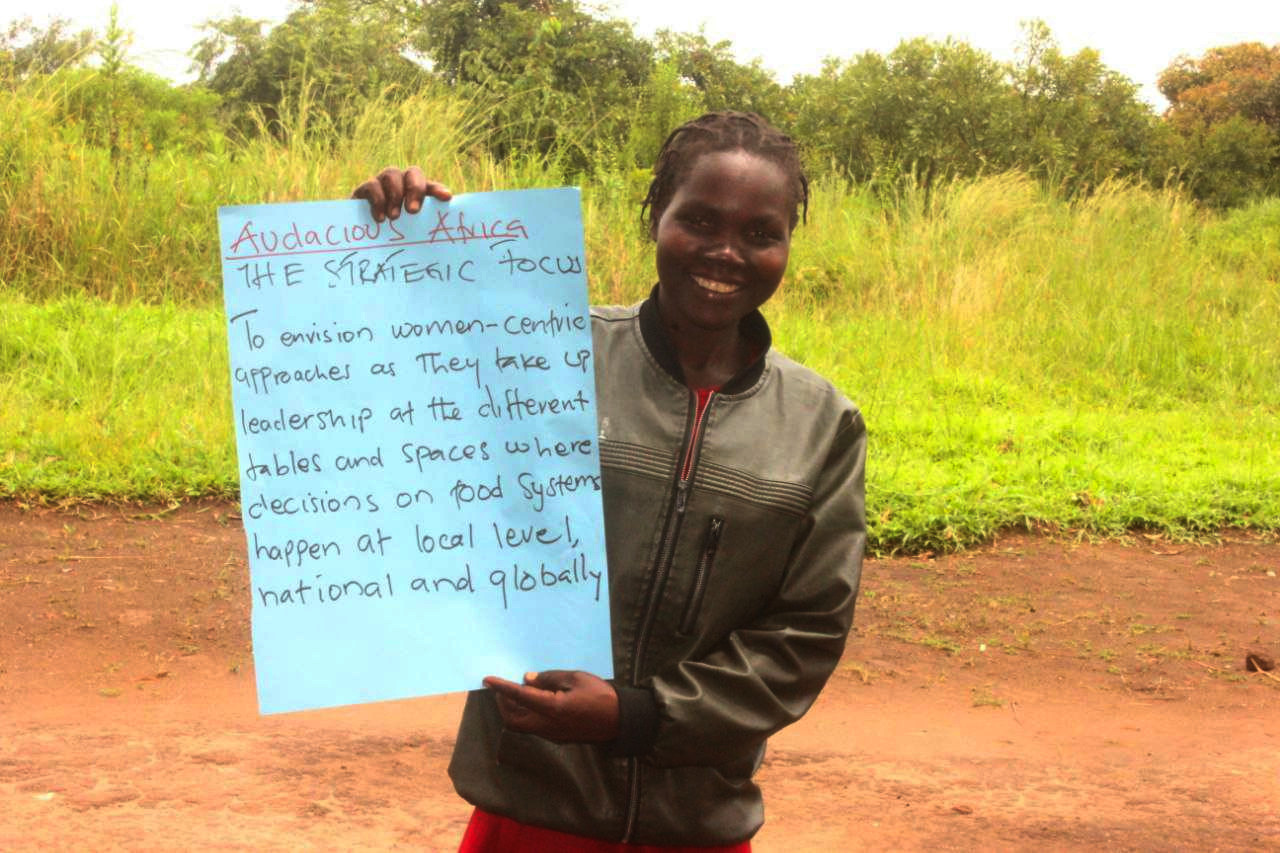 Audacious Africa
THE STRATEGIC FOCUS
To envision women-centric
approaches as They take up
leadership at the different
tables and spaces where
decisions on food systems
happen at local level,
national and globally